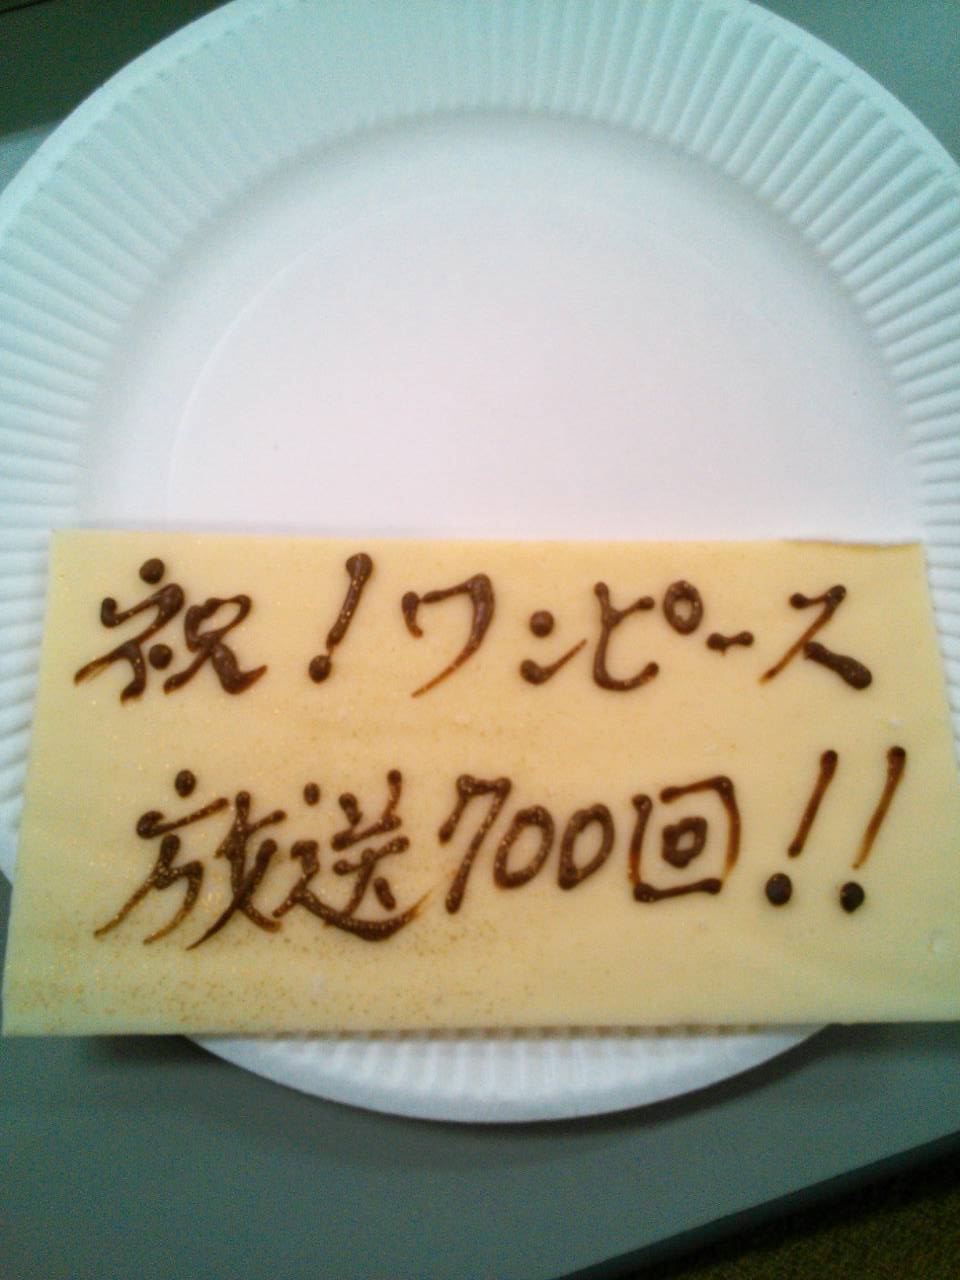 祝!ワンピース
放送700回!!